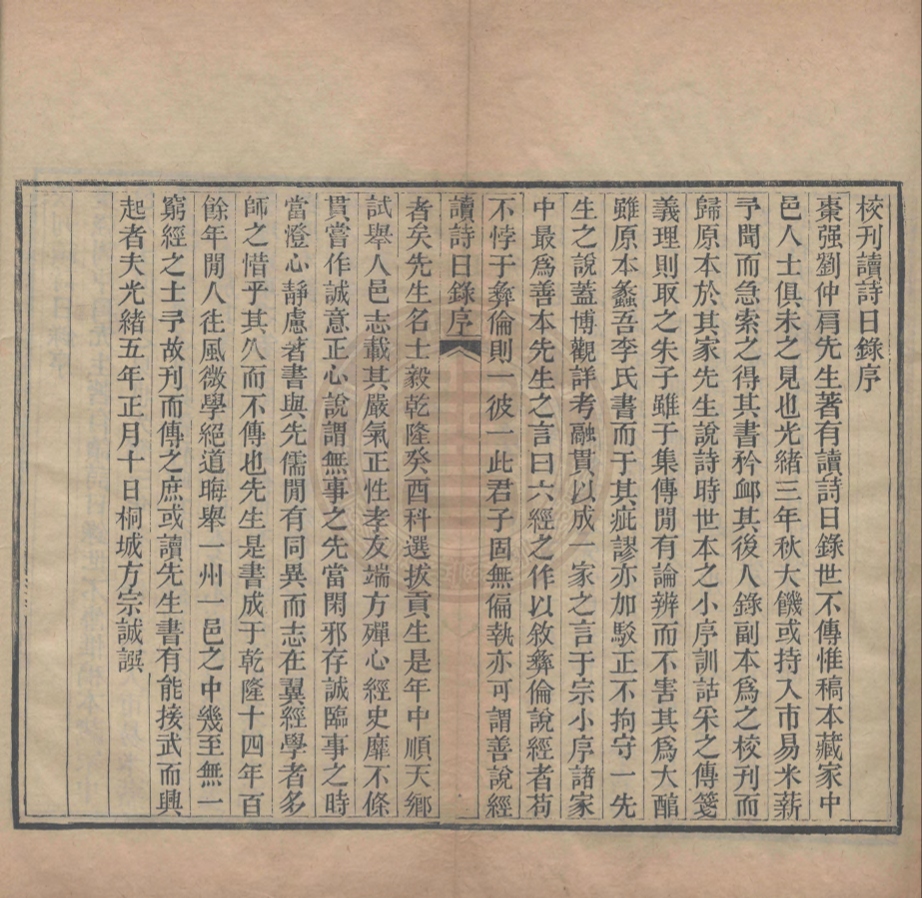 校刊讀詩日錄序
棗强劉仲肩先生著有讀詩日錄世不傳惟稿本藏家中
邑人士俱未之見也光緒三年秋大饑或持入市易米薪
予聞而急索之得其書矜卹其後人錄副本爲之校刊而
歸原本於其家先生說詩時世本之小序訓詁采之傳箋
義理則取之朱子雖于集傳閒有論辨而不害其爲大醇
雖原本蠡吾李氏書而于其疵謬亦加駁正不拘守一先
生之說蓋博觀詳考融貫以成一家之言于宗小序諸家
中最爲善本先生之言曰六經之作以敘彝倫說經者苟
不悖于彝倫則一彼一此君子固無偏執亦可謂善說經
讀詩日錄序
者矣先生名士毅乾隆癸酉科選拔貢生是年中順天鄉
試舉人邑志載其嚴氣正性孝友端方殫心經史靡不條
貫嘗作誠意正心說謂無事之先當閑邪存誠臨事之時
當澄心靜慮著書與先儒閒有同異而志在翼經學者多
師之惜乎其久而不傳也先生是書成于乾隆十四年百
餘年閒人徃風微學絕道晦舉一州一邑之中幾至無一
窮經之士予故刊而傳之庶或讀先生書有能接武而興
起者夫光緒五年正月十日桐城方宗誠譔